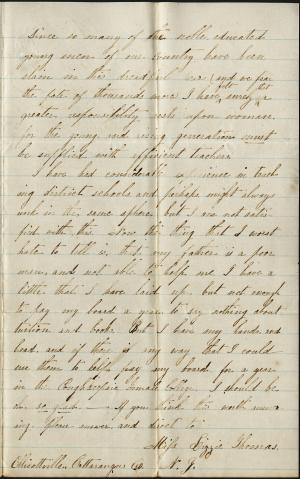 Since so many of the noble, educated
young men of our country have been
slain in this dreadful war (and we fear
the fate of thousands more) I have felt that
greater responsibility rests upon woman.
for the young and rising generation must
be supplied with efficient teachers.
I have had considerable experience in teach
ing district schools and perhaps might always
work in the same sphere, but I am not satis
fied with this. Now the thing that I most
hate to tell is, that my father is a poor
man, and not able to help me. I have a
little that I have laid up, but not enough
to pay my board a year to say nothing about
tuition and books. But I have my hands and
head, and if there is any way that I could
use them to help pay my board for a year
in the Poughkeepsie Female College. I should be
so glad. If you think this worth answer
ing. Please answer, and direct to
Miss Lizzie Thomas.
Ellicottville, Cattaraugus Co. N. Y.